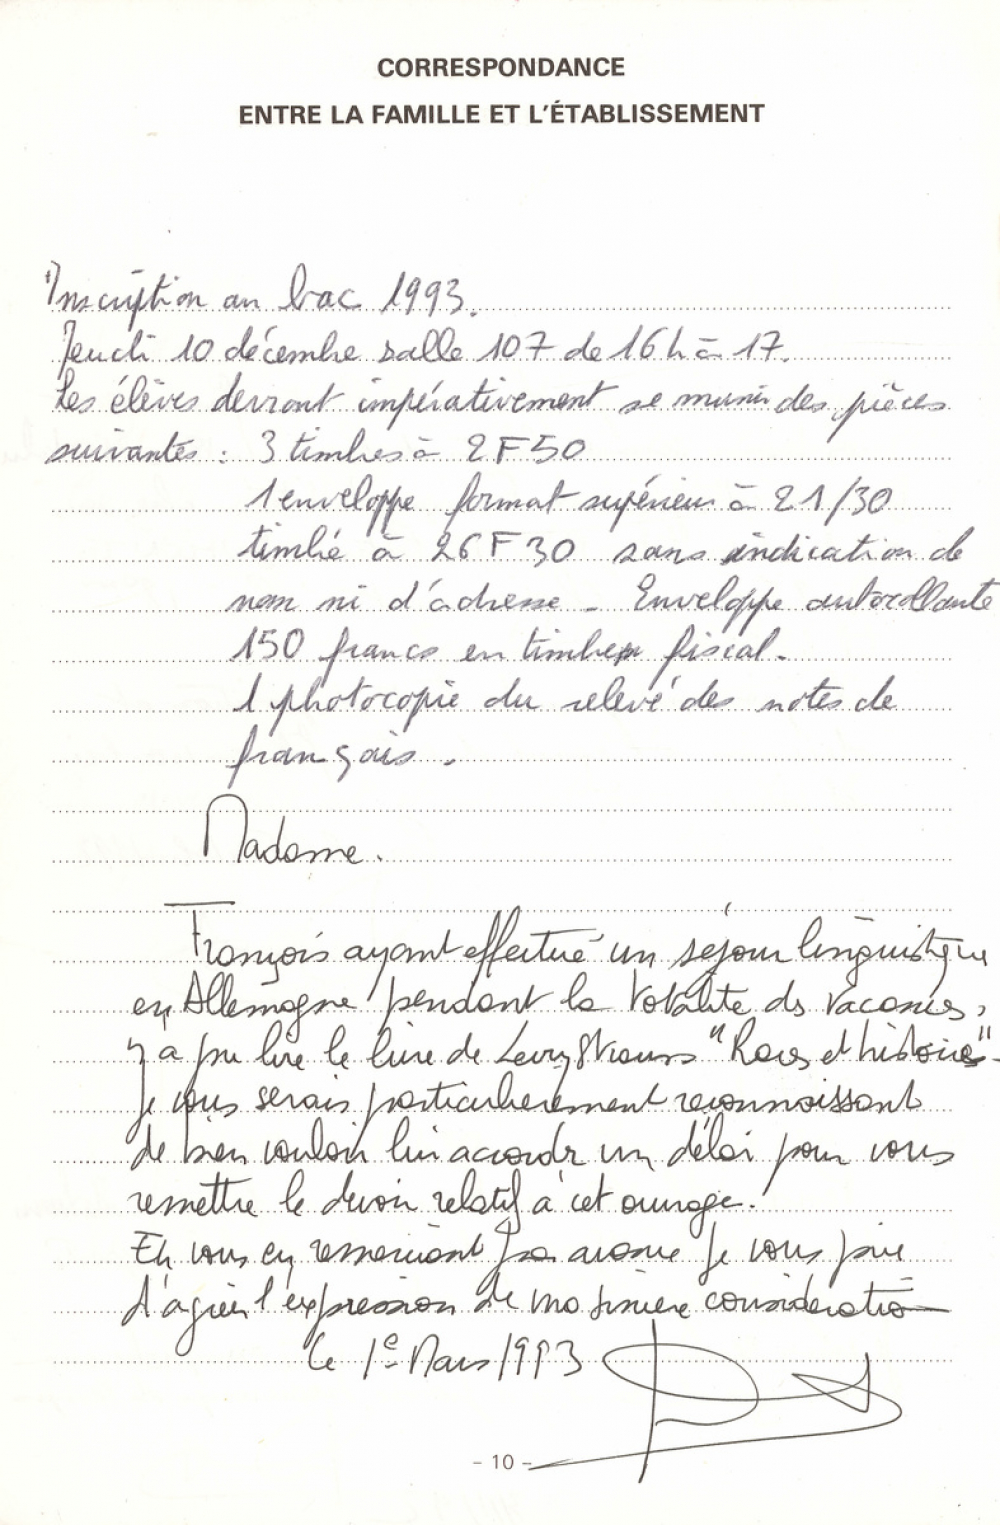 CORRESPONDANCE
ENTRE LA FAMILLE ET L'ÉTABLISSEMENT
Inscription au bac 1993.
Jeudi 10 décembre salle 107 de 16h à 17.
Les élèves devront impérativement se munir des pièces
suivantes : 3 timbres à 2F50
1 enveloppe format supérieur à 21/30
timbré à 26F30 sans indication de
nom ni d'adresse - Enveloppe autocollante
150 francs en timbre fiscal.
1 photocopie du relevé des notes de
français.
Madame.
François ayant effectué un séjour linguistique
en Allemagne pendant la totalité des vacances,
n'a pu lire le livre de Levy Strauss "Races et histoires"-
Je vous serais particulièrement reconnaissant
de bien vouloir lui accorder un délai pour vous
remettre le devoir relatif à cet ouvrage.
En vous en remerciant par avance je vous prie
d'agréer l'expression de ma sincère considération
Le 1e Mars 1993
- 10 -